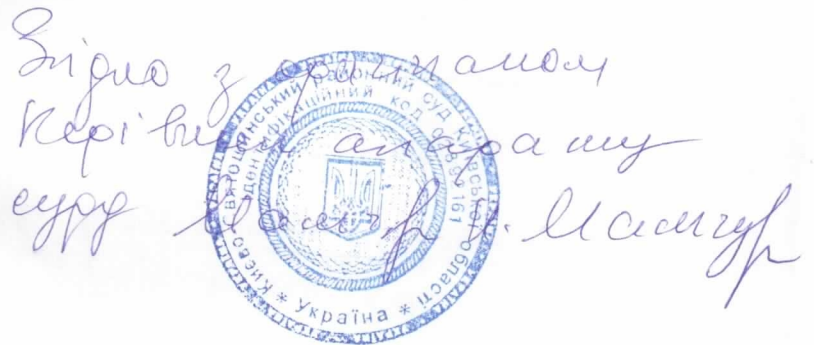 Згідно з оригіналом
Керівник апарату
суду Мамчур Н. Мамчур
Києво - Святошинський районний суд Київської області * Україна *
Ідентифікаційний код